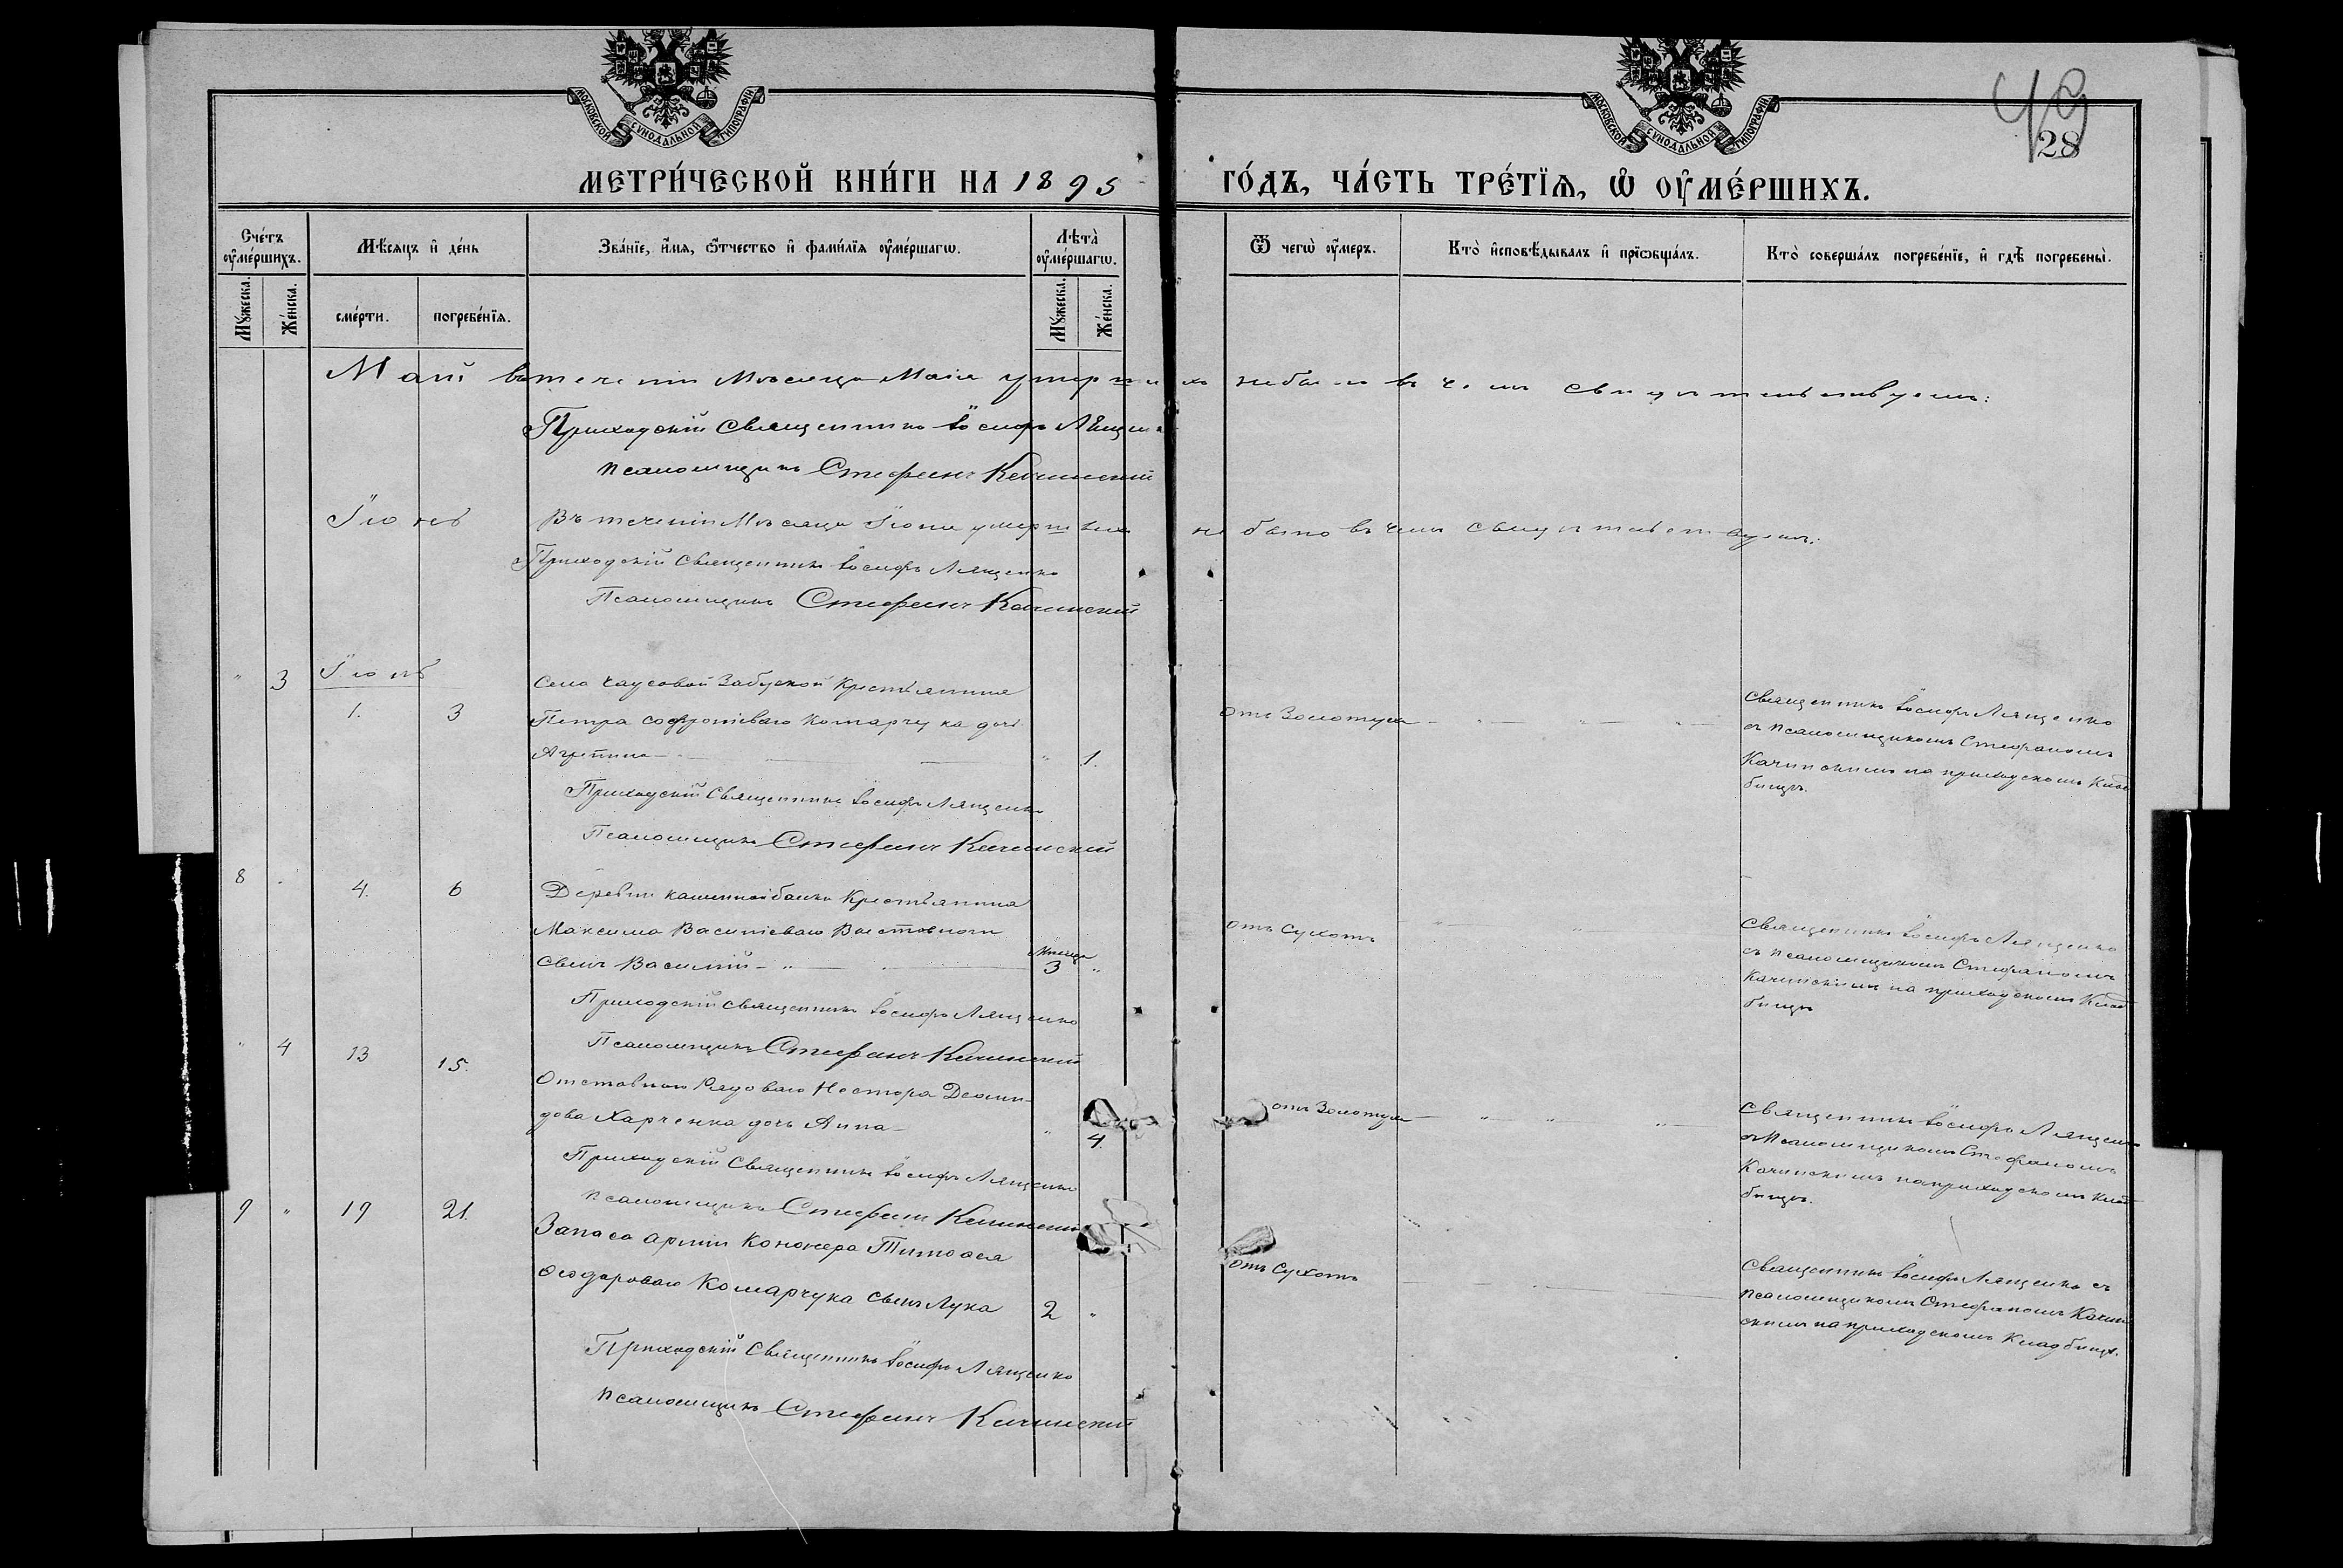 МОСКОВСКОЙ СѴНОДАЛЬНОЙ ТИПОГРАФІИ
МОСКОВСКОЙ СѴНОДАЛЬНОЙ ТИПОГРАФІИ
28
МЕТРИ́ЧЕСКОЙ КНИ́ГИ НА 1895
ГО́ДЪ, ЧА́СТЬ ТРЕ́ТЇѦ, Ѡ҆ ОУ҆МЕ́РШИХЪ.
Сче́тъ оу҆ме́ршихъ.
Мѣ́сяцъ и҆ де́нь
Зва́нїе, и҆́мя, ѻ҆́тчество и҆ фами́лїя оу҆ме́ршагѡ.
Лѣта̀ оу҆ме́ршагѡ.
Ѿ чегѡ̀ оу҆́меръ.
Кто̀ и҆сповѣ́дывалъ и҆ прїѡбща́лъ.
Кто̀ соверша́лъ погребе́нїе, и҆ гдѣ̀ погребены̀.
Му́жеска.
Же́нска.
сме́рти.
погребе́нїя.
Му́жеска.
Же́нска.
Май въ теченіи Мѣсяца Маія умершихъ небыло въ чемъ свидѣтельствуемъ:
Приходскій Священникъ Іосифъ Лящен
псаломщикъ Стефанъ Качинскій
Іюнь Въ теченіи Мѣсяца Іюня умершихъ не было въ чемъ свидѣтельствуемъ:
Приходскій Священникъ Іосифъ Лященко
Псаломщикъ Стефанъ Качинскій
" 3 Іюль
Села Чаусовой Забугской Крестьянина
1. 3 Петра Софроніеваго Комарчука дочь
Агрипина " 1.
отъ Золотухи
Священникъ Іосифъ Лященко
съ псаломщикомъ Стефаномъ
Качинскимъ на приходскомъ Клад
бищѣ.
Приходскій Священникъ Іосифъ Лященко
Псаломщикъ Стефанъ Качинскій
8 " 4. 6 Деревни Каменной балки Крестьянина
Максима Василіеваго
сынъ Василій Мѣсяца 3 "
отъ Сухотъ
Священникъ Іосифъ Лященко
съ псаломщикомъ Стефаномъ
Качинскимъ на приходскомъ Клад
бищѣ
Приходскій Священникъ Іосифъ Лященко
Псаломщикъ Стефанъ Качинскій
" 4 13 15.
Отставнаго Рядоваго Нестора Деоми-
дова Харченка дочь Анна " 4.
отъ Золотухи
Священникъ Іосифъ Лященко
съ Псаломщикомъ Стефаномъ
Качинскимъ на приходскомъ клад
бищѣ.
Приходскій Священникъ Іосифъ Лященко
псаломщикъ Стефанъ Качинскій
9 " 19 21.
Запаса арміи Кононера Тимофея
Феодороваго Комарчука сынъ Лука 2 "
отъ Сухотъ
Священникъ Іосифъ Лященко съ
псаломщикомъ Стефаномъ Качин
скимъ на приходскомъ Кладбищѣ.
Приходскій Священникъ Іосифъ Лященко
псаломщикъ Стефанъ Качинскій